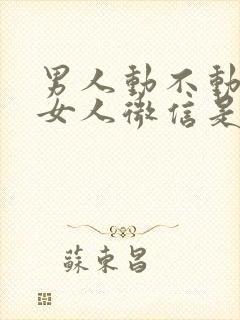 男人動不動
女人微信是
蘇東昌